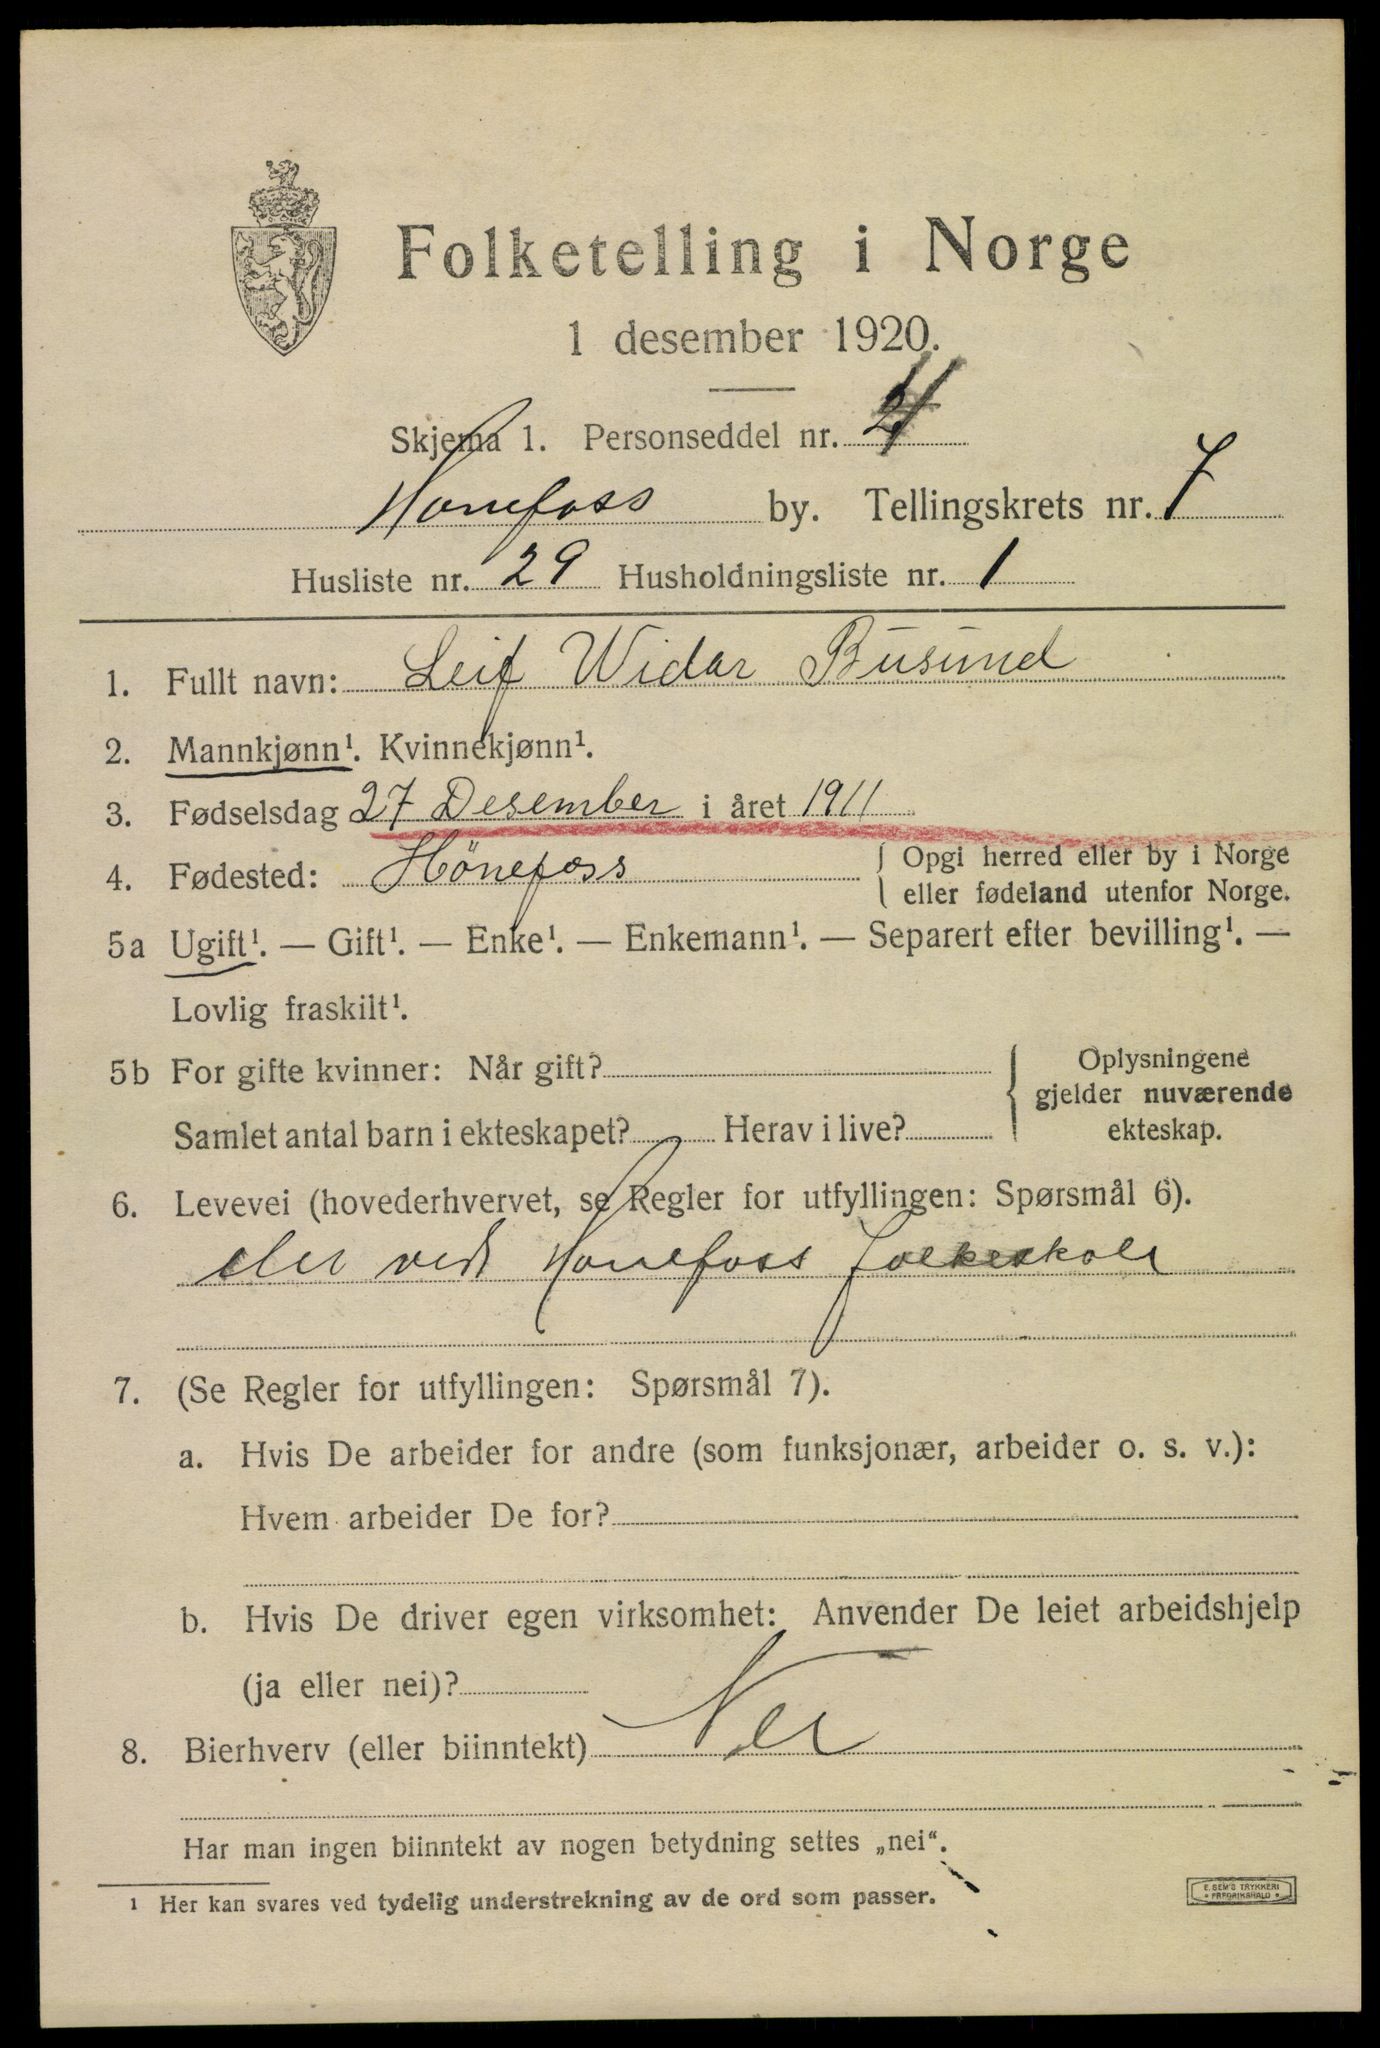 Folketelling i Norge
1 desember 1920.
Skjema 1. Personseddel nr.
Honefoss by. Tellingskrets nr. 7
Husliste nr. 29 Husholdningsliste nr. 1
1. Fullt navn: Leif Widar Busund
2. Mannkjønn¹. Kvinnekjønn¹.
3. Fødselsdag 27 Desember i året 1911
4. Fødested: Hönefoss { Opgi herred eller by i Norge
eller fødeland utenfor Norge.
5a Ugift¹. — Gift¹. — Enke¹. — Enkemann¹. — Separert efter bevilling¹. —
Lovlig fraskilt¹.
5b For gifte kvinner: Når gift? { Oplysningene
gjelder nuværende
Samlet antal barn i ekteskapet? Herav i live? ekteskap.
6. Levevei (hovederhvervet, se Regler for utfyllingen: Spørsmål 6).
elev ved Honefoss folkeskole
7. (Se Regler for utfyllingen: Spørsmål 7).
a. Hvis De arbeider for andre (som funksjonær, arbeider o. s. v.):
Hvem arbeider De for?
b. Hvis De driver egen virksomhet: Anvender De leiet arbeidshjelp
(ja eller nei)?
8. Bierhverv (eller biinntekt) Nei
Har man ingen biinntekt av nogen betydning settes „nei“.
¹ Her kan svares ved tydelig understrekning av de ord som passer.
E. SEM'S TRYKKERI
• FREDRIKSHALD •